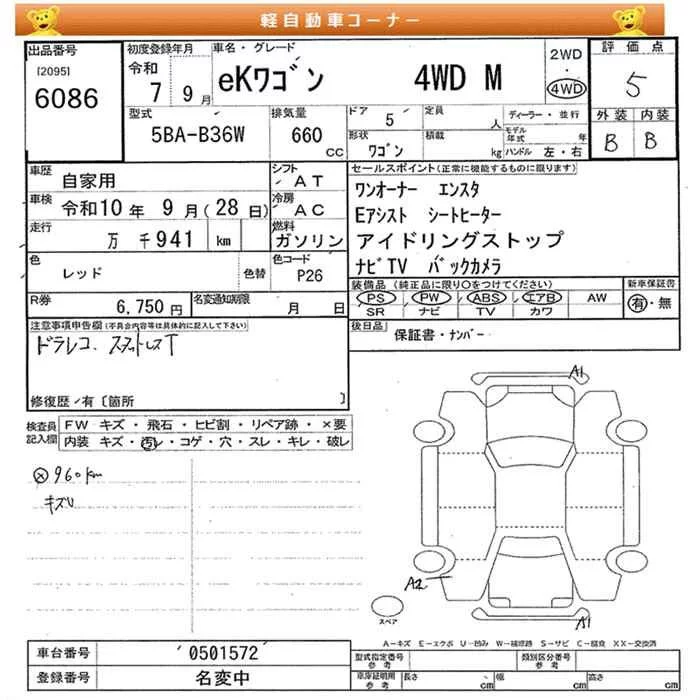 軽自動車コーナー
出品番号 初度登録年月 車名・グレード 2WD ・ 4WD 評価点
[2095] 6086 令和 7 9月 eKワゴン 4WD M 5
型式 5BA-B36W 排気量 660 CC ドア 5 定員 人 ディーラー・並行 外装 内装
形状 ワゴン 積載 kg モデル年式 年 ハンドル 左・右 B B
車歴 自家用 シフト AT セールスポイント(正常に機能するものに限ります)
車検 令和10年 9月(28日) 冷房 AC ワンオーナー エンスタ
Eアシスト シートヒーター
走行 万 千941 km 燃料 ガソリン アイドリングストップ
ナビTV バックカメラ
色 レッド 色替 色コード P26 装備品(純正品に限り○をつけてください) 新車保証書
R券 6,750円 名変通知期限 月 日 PS PW ABS エアB AW 有・無
SR ナビ TV カワ
注意事項申告欄(不具合内容等は具体的に記入して下さい) 後日品 保証書・ナンバー
ドラレコ
修復歴/有〔箇所 〕
検査員記入欄 FW キズ・飛石・ヒビ割・リペア跡・×要
内装 キズ・汚レ・コゲ・穴・スレ・キレ・破レ
960km
キズU
A1
A2
スペア
A1
A-キズ E-エクボ U-凹み W-補修跡 S-サビ C-腐食 XX-交換済
車台番号 0501572 型式指定番号 参考 類別区分番号 参考
登録番号 名変中 車庫証明用 参考 長さ cm 幅 cm 高さ cm